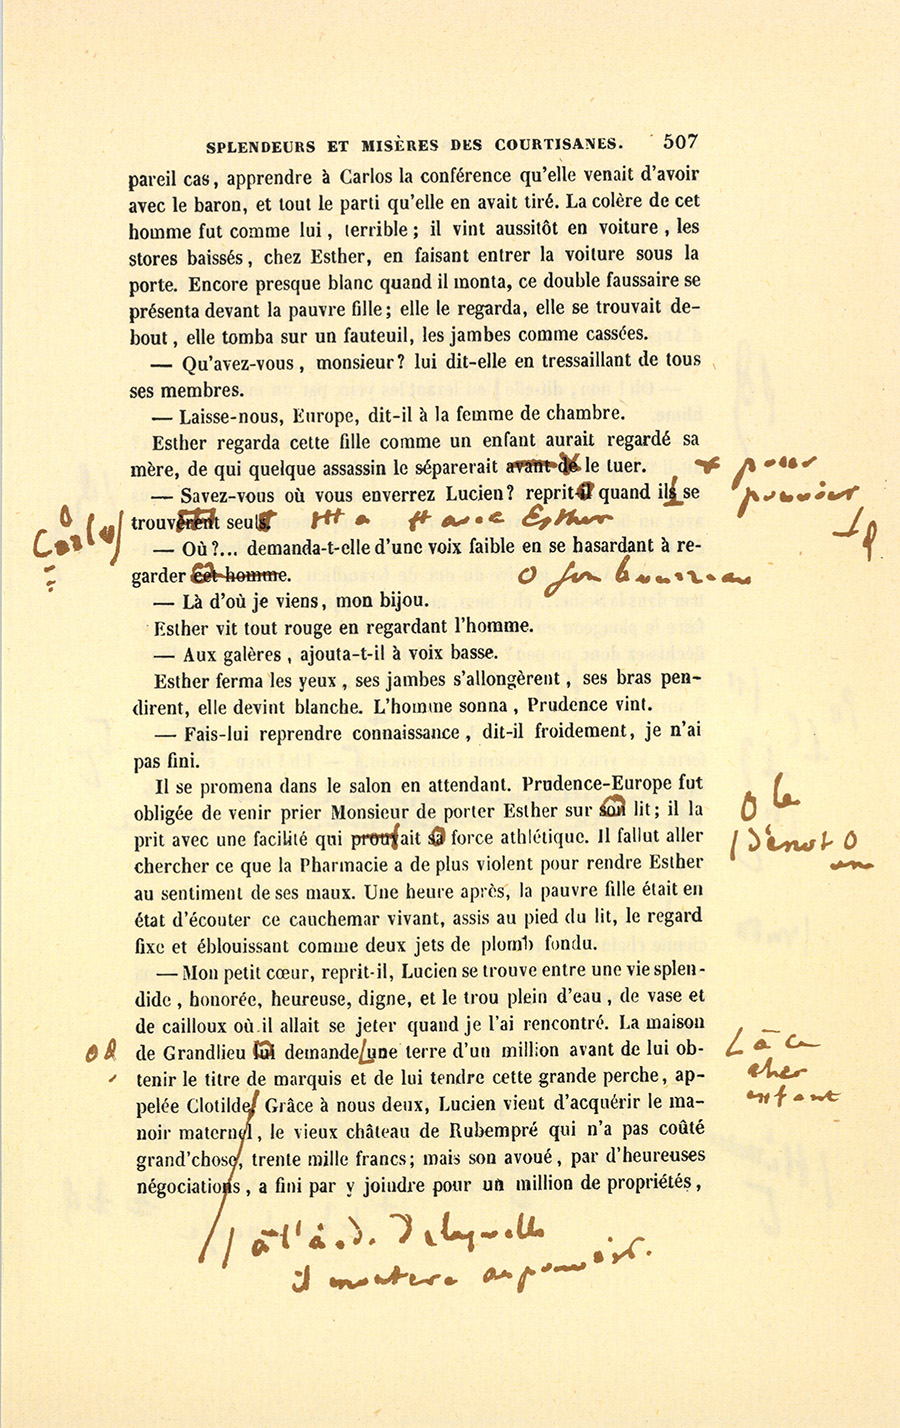 SPLENDEURS ET MISÈRES DES COURTISANES. 507
pareil cas, apprendre à Carlos la conférence qu'elle venait d'avoir
avec le baron, et tout le parti qu'elle en avait tiré. La colère de cet
homme fut comme lui, terrible; il vint aussitôt en voiture, les
stores baissés, chez Esther, en faisant entrer la voiture sous la
porte. Encore presque blanc quand il monta, ce double faussaire se
présenta devant la pauvre fille; elle le regarda, elle se trouvait de-
bout, elle tomba sur un fauteuil, les jambes comme cassées.
— Qu'avez-vous, monsieur? lui dit-elle en tressaillant de tous
ses membres.
— Laisse-nous, Europe, dit-il à la femme de chambre.
Esther regarda cette fille comme un enfant aurait regardé sa
mère, de qui quelque assassin le séparerait avant de le tuer. pour
— Savez-vous où vous enverrez Lucien? reprit-il quand ils se
pouvoir
trouvèrent seuls. avec Esther
Carlos
— Où?... demanda-t-elle d'une voix faible en se hasardant à re-
garder cet homme. son bourreau
— Là d'où je viens, mon bijou.
Esther vit tout rouge en regardant l'homme.
— Aux galères, ajouta-t-il à voix basse.
Esther ferma les yeux, ses jambes s'allongèrent, ses bras pen-
dirent, elle devint blanche. L'homme sonna, Prudence vint.
— Fais-lui reprendre connaissance, dit-il froidement, je n'ai
pas fini.
Il se promena dans le salon en attendant. Prudence-Europe fut
obligée de venir prier Monsieur de porter Esther sur son lit; il la
le
prit avec une facilité qui prouvait sa force athlétique. Il fallut aller
chercher ce que la Pharmacie a de plus violent pour rendre Esther
au sentiment de ses maux. Une heure après, la pauvre fille était en
état d'écouter ce cauchemar vivant, assis au pied du lit, le regard
fixe et éblouissant comme deux jets de plomb fondu.
— Mon petit cœur, reprit-il, Lucien se trouve entre une vie splen-
dide, honorée, heureuse, digne, et le trou plein d'eau, de vase et
de cailloux où il allait se jeter quand je l'ai rencontré. La maison
de Grandlieu lui demande une terre d'un million avant de lui ob-
à ce
cher
enfant
tenir le titre de marquis et de lui tendre cette grande perche, ap-
pelée Clotilde. Grâce à nous deux, Lucien vient d'acquérir le ma-
noir maternel, le vieux château de Rubempré qui n'a pas coûté
grand'chose, trente mille francs; mais son avoué, par d'heureuses
négociations, a fini par y joindre pour un million de propriétés,
à l'aide de laquelle
il montera au pouvoir.